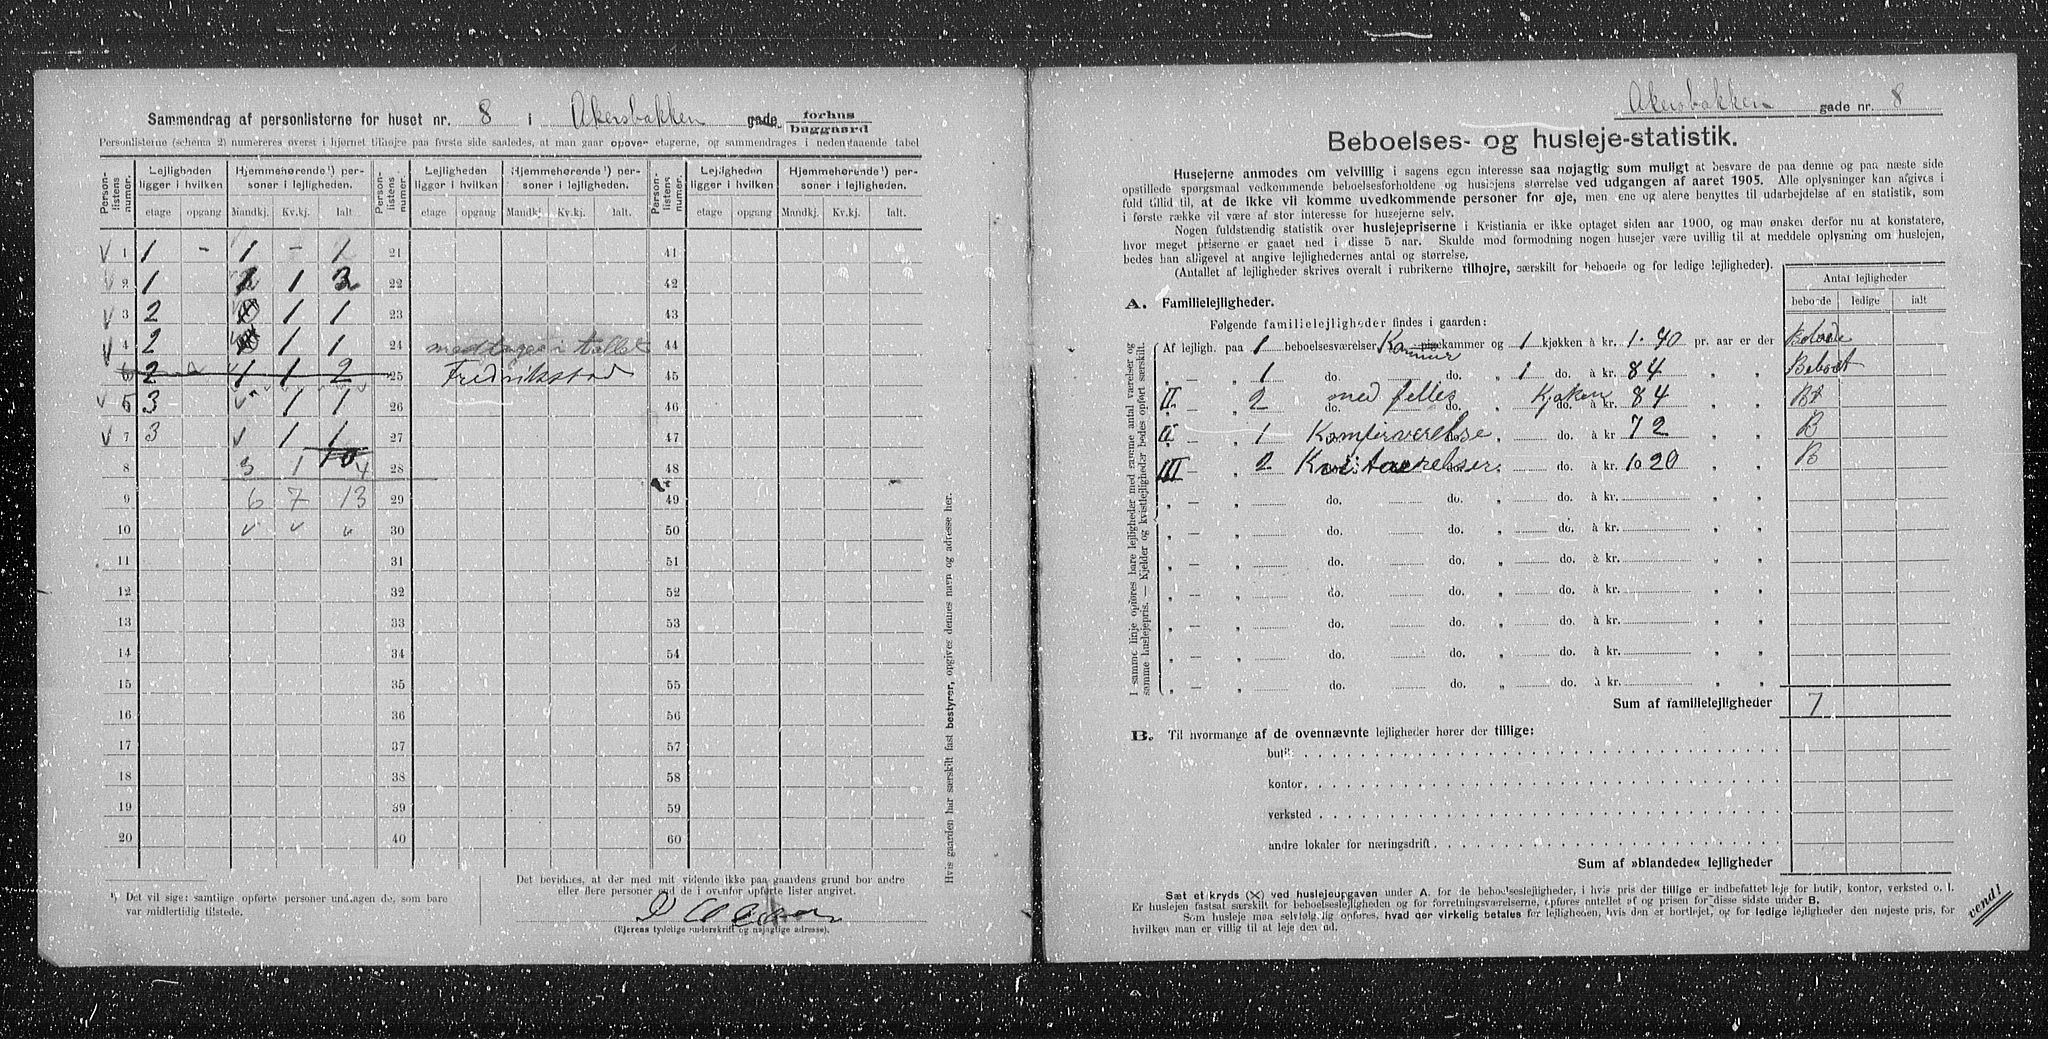 Sammendrag af personlisterne for huset nr. 8 i Akersbakken gade forhus baggaard
Personlisterne (schema 2) numereres øverst i hjørnet tilhøjre paa første side saaledes, at man gaar opover etagerne, og sammendrages i nedengaaende tabel
Person-listens nummer. Lejligheden ligger i hvilken Hjemmehørende¹) personer i lejligheden. Person-listens nummer. Lejligheden ligger i hvilken Hjemmehørende¹) personer i lejligheden. Person-listens nummer. Lejligheden ligger i hvilken Hjemmehørende¹) personer i lejligheden.
etage opgang Mandkj. Kv.kj. Ialt. etage opgang Mandkj. Kv.kj. Ialt. etage opgang Mandkj. Kv.kj. Ialt.
1 1 - 1 - 1 21 41
2 1 1 22 42
3 2 1 1 23 43
4 2 1 1 24 medtages i tallet 44
2 1 1 2 25 Fredrikstad 45
5 3 1 1 26 46
7 3 1 1 27 47
8 3 1 4 28 48
9 6 7 13 29 49
10 30 50
11 31 51
12 32 52
13 33 53
14 34 54
15 35 55
16 36 56
17 37 57
18 38 58
19 39 59
20 40 60
Hvis gaarden har særskilt fast bestyrer, opgives dennes navn og adresse her.
¹) Det vil sige: samtlige opførte personer undtagen de, som bare var midlertidig tilstede.
Det bevidnes, at der med mit vidende ikke paa gaardens grund bor andre
eller flere personer end de i ovenfor opførte lister angivet.
(Ejerens tydelige underskrift og nøjagtige adresse).
Akersbakken gade nr. 8
Beboelses- og husleje-statistik.
Husejerne anmodes om velvillig i sagens egen interesse saa nøjagtig som muligt at besvare de paa denne og paa næste side
opstillede spørgsmaal vedkommende beboelsesforholdene og huslejens størrelse ved udgangen af aaret 1905. Alle oplysninger kan afgives i
fuld tillid til, at de ikke vil komme uvedkommende personer for øje, men ene og alene benyttes til udarbejdelse af en statistik, som
i første række vil være af stor interesse for husejerne selv.
Nogen fuldstændig statistik over huslejepriserne i Kristiania er ikke optaget siden aar 1900, og man ønsker derfor nu at konstatere,
hvor meget priserne er gaaet ned i disse 5 aar. Skulde mod formodning nogen husejer være uvillig til at meddele oplysning om huslejen,
bedes han alligevel at angive lejlighedernes antal og størrelse.
(Antallet af lejligheder skrives overalt i rubrikerne tilhøjre, særskilt for beboede og for ledige lejligheder).
Antal lejligheder
beboede ledige ialt
A. Familielejligheder.
Følgende familielejligheder findes i gaarden:
I samme linje opføres bare lejligheder med samme antal værelser og samme huslejepris. — Kjelder og kvistlejligheder bedes opført særskilt.
Af lejligh. paa 1 beboelsesværelser pigekammer og 1 kjøkken à kr. 1.40 pr. aar er der
„ „ 1 do. do. „ 1 do. à kr. 84 „ „ Beboet
II „ 2 med felles Kjøken do. à kr. 84 „ „
„ 1 do. „ do. à kr. 72 „ „ B
III „ 2 Kvistværelser do. „ do. à kr. 1020 „ „ B
„ „ do. do. „ do. à kr. „ „
„ „ do. do. „ do. à kr. „ „
„ „ do. do. „ do. à kr. „ „
„ „ do. do. „ do. à kr. „ „
„ „ do. do. „ do. à kr. „ „
„ „ do. do. „ do. à kr. „ „
„ „ do. do. „ do. à kr. „ „
Sum af familielejligheder 7
B. Til hvormange af de ovennævnte lejligheder hører der tillige:
butik
kontor
verksted
andre lokaler for næringsdrift
Sum af »blandede« lejligheder
Sæt et kryds (×) ved huslejeopgaven under A. for de beboelseslejligheder, i hvis pris der tillige er indbefattet leje for butik, kontor, verksted o. l.
Er huslejen fastsat særskilt for beboelseslejligheden og for forretningsværelserne, opføres antallet af og prisen for disse sidste under B.
Som husleje maa selvfølgelig opføres, hvad der virkelig betales for lejligheden, hvis den er bortlejet, og for ledige lejligheder den nøjeste pris, for
hvilken man er villig til at leje den ud.
vend!